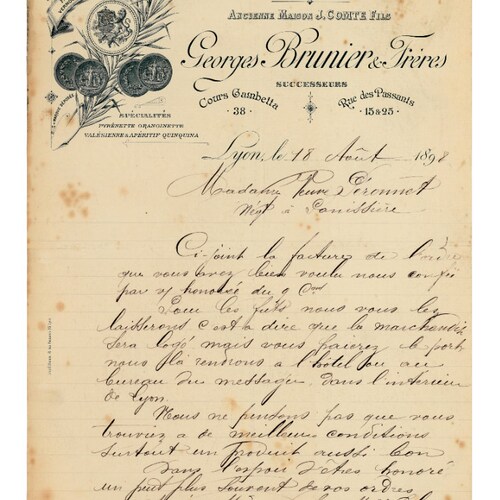 ANCIENNE MAISON J. COMTE FILS
Georges Brunier & Frères
SUCCESSEURS
Cours Gambetta
38
Rue des Passants
15 & 25
SPÉCIALITÉS
PYRÉNETTE ORANGINETTE
VALÉSIENNE & APÉRITIF QUINQUINA
Lyon, le 18 Août 1898
Madame Veuve Péronnet
Négt à Panissière
Ci-joint la facture de l'ordre
que vous avez bien voulu nous confi
par v/ honorée du 9 Cour
Pour les fûts nous vous les
laisserons c'est à dire que la marchandise
sera logé mais vous paierez le port
nous là rendrons à l'hôtel ou au
bureau du messager dans l'intérieur
de Lyon.
Nous ne pensons pas que vous
trouviez a de meilleurs conditions
surtout un produit aussi bon
Dans l'espoir d'êtres honoré
un peut plus souvent de vos ordres